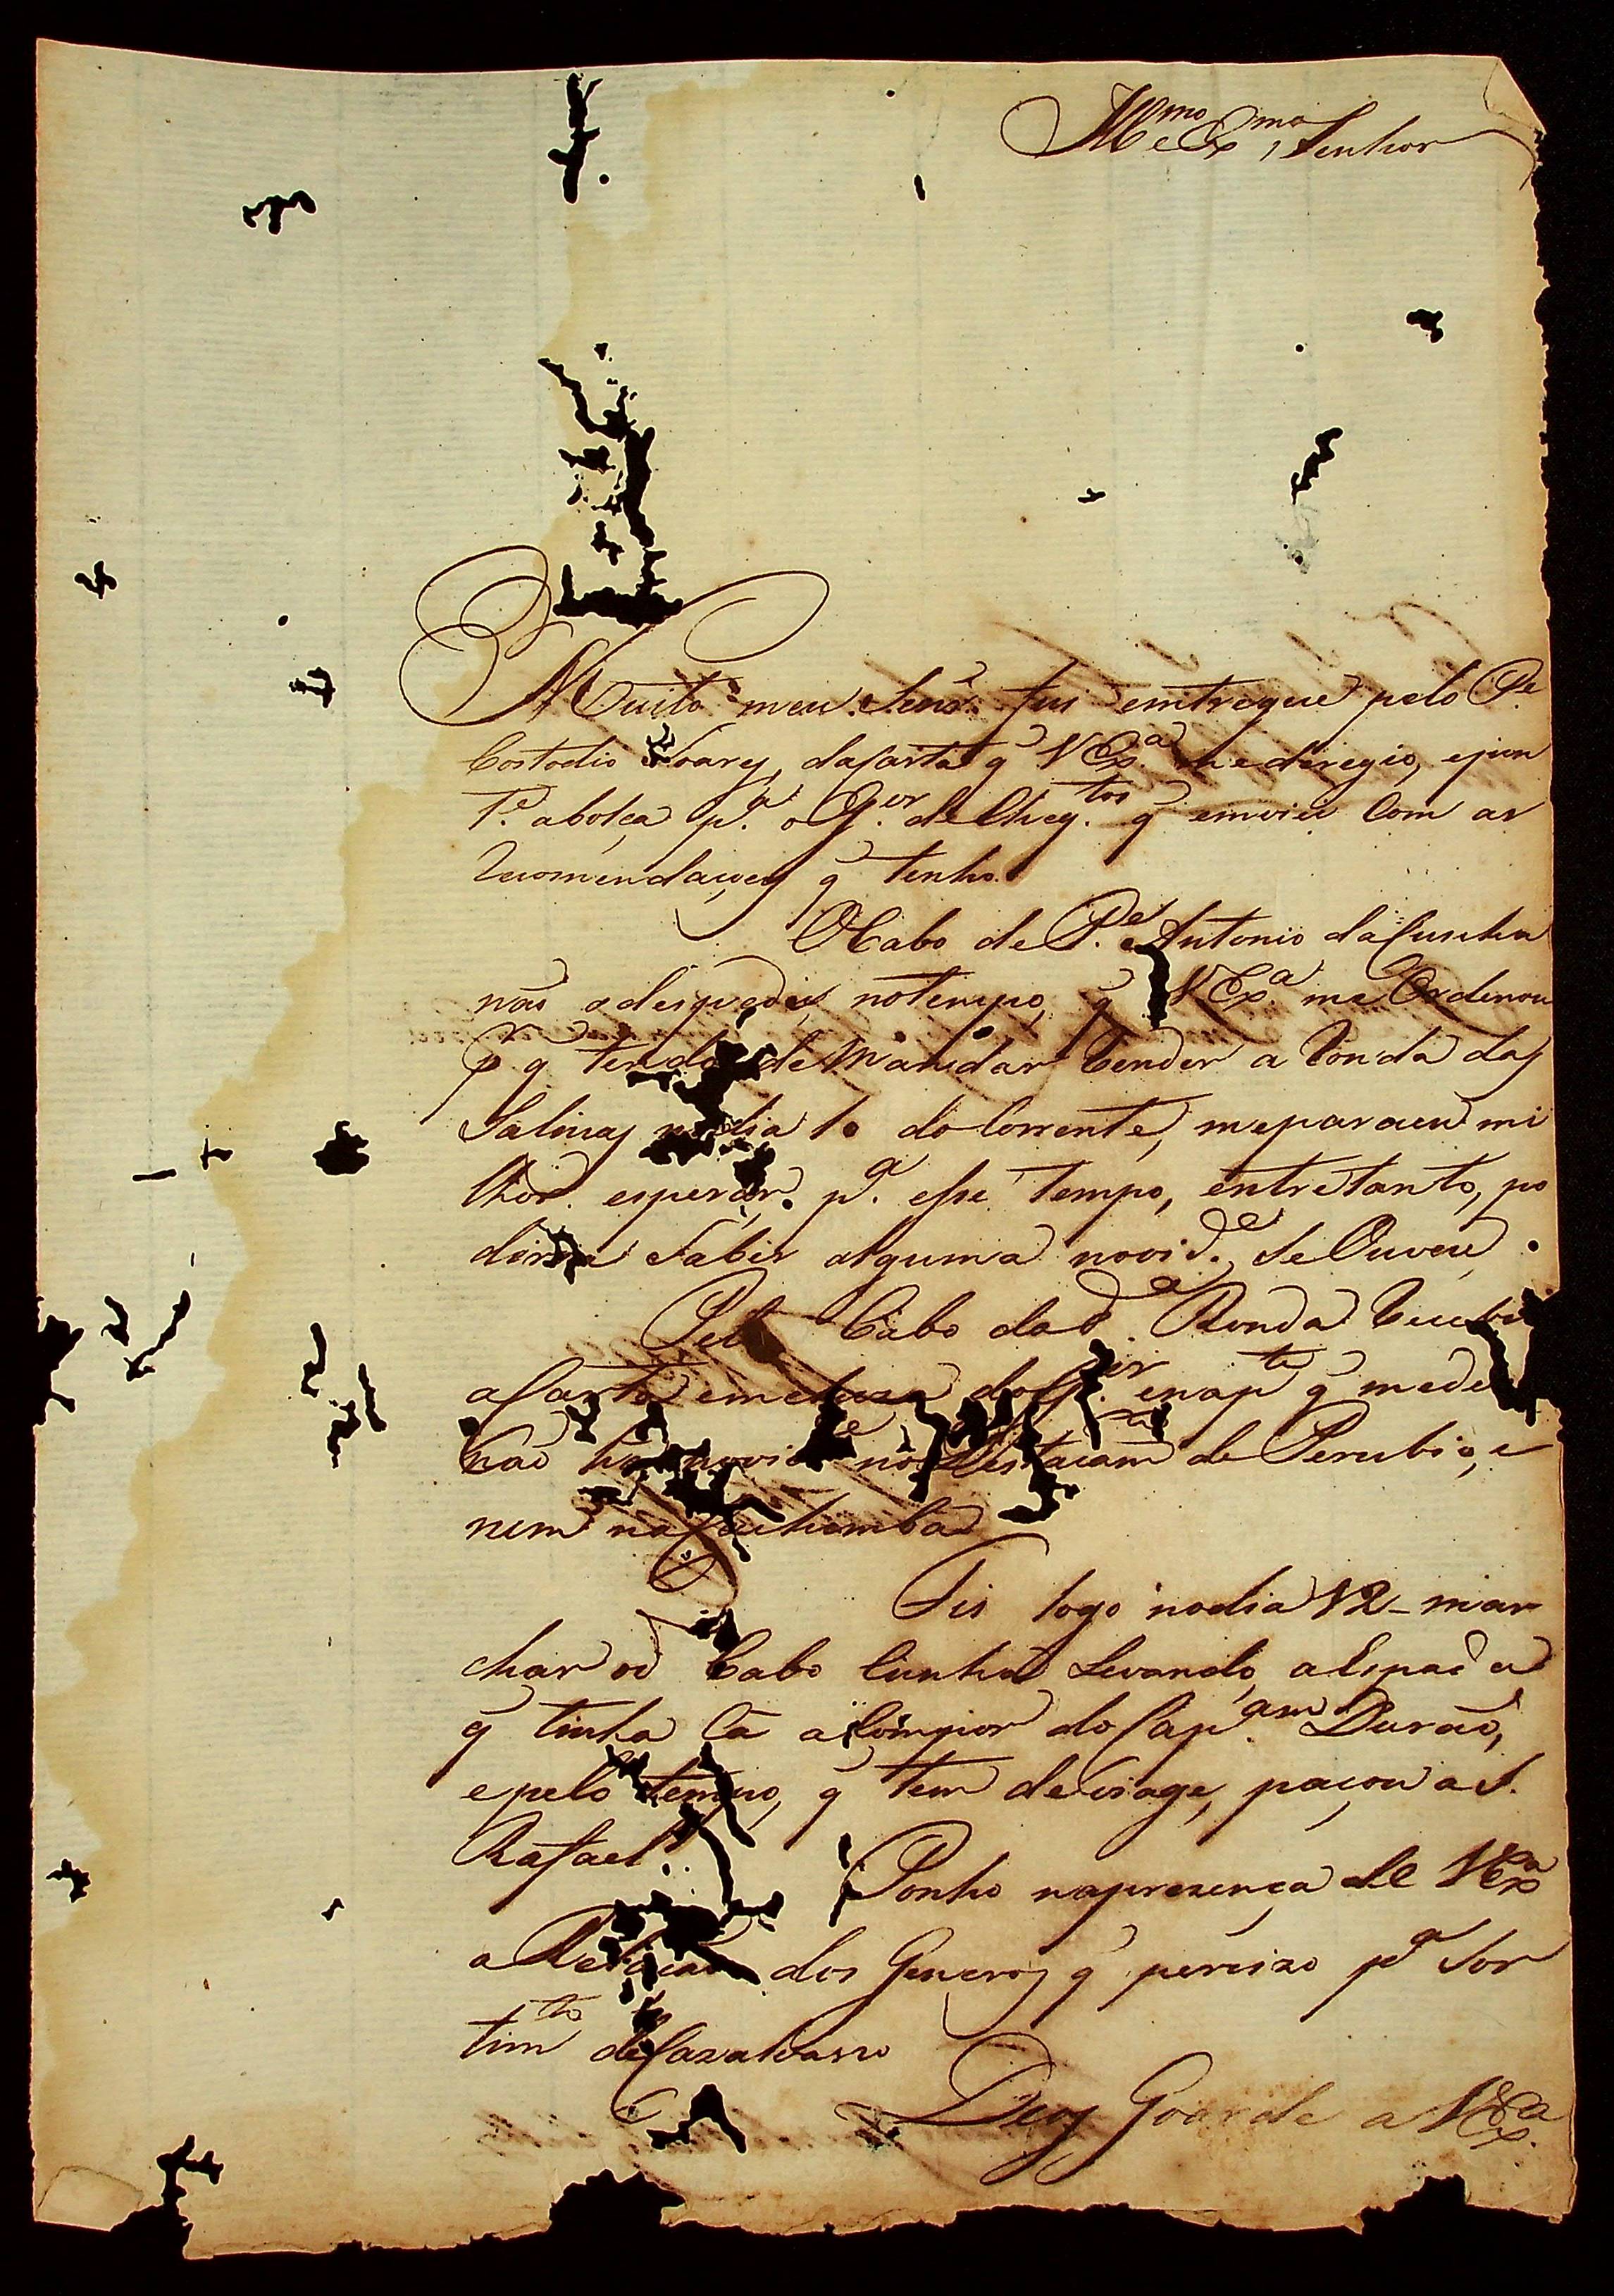 Illmo e Exmo Senhor
Muito meu Senr. fui entregue pelo Pe.
Costodio Soares, da Carta q̃ V Exa. me deregio, e jun
te. a bolça pa. o Ger. de Chiqtos. q̃ enviei Com as
recomendaçoes q̃ tenho.
O Cabo de Pe. Antonio da Cunha
não o despedi no tempo, q̃ V Exa. me Ordenou
pr. q̃ tendo de Mandar render a Ronda das
Salinas no dia 1o do Corrente, me pareceu mi
lhor esperar pa. esse tempo, entretanto, po
deria Saber alguma novide. Se Ouvese.
Pelo Cabo da de. Ronda recebi
a Carta emcluza do Ger. en a pte q̃ me de
não ha novide no Destacamo de Perubio, e
nem na Cachomba
Fis logo no dia 12 - mar
char od Cabo Cunha Levando, a Espada
q̃ tinha Cá a Compor do Capam. Durão,
e pelo tempo, q̃ tem de viage, paçou a S.
Rafael.
Ponho na prezença de V Exa
a Relação dos Generos q̃ percizo pa Sor
timto de Cazalvasco
Deos Goarde a V Exa.